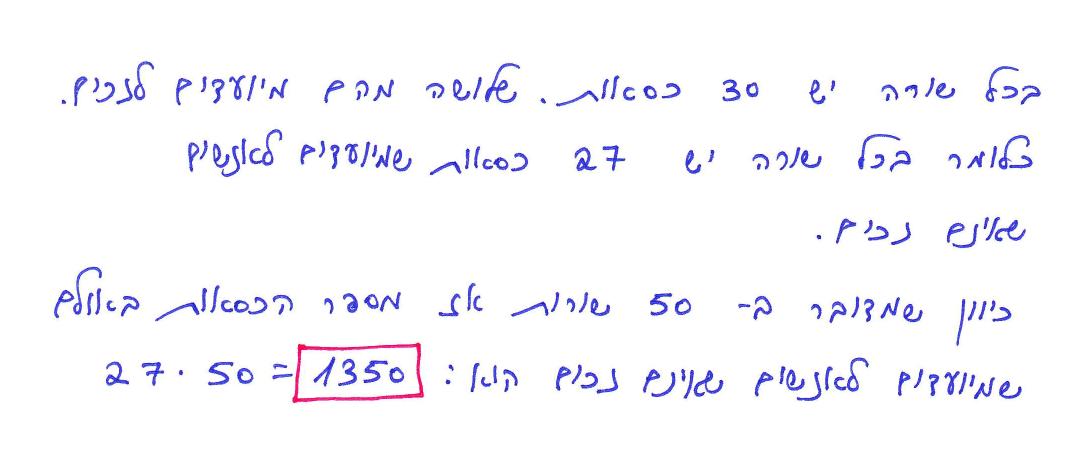 בכל שורה יש 30 כסאות. שלושה מהם מיועדים לנכים.
כלומר בכל שורה יש 27 כסאות שמיועדים לאנשים
שאינם נכים.
כיוון שמדובר ב- 50 שורות אז מספר הכסאות באולם
שמיועדים לאנשים שאינם נכים הוא: 27 · 50 = 1350